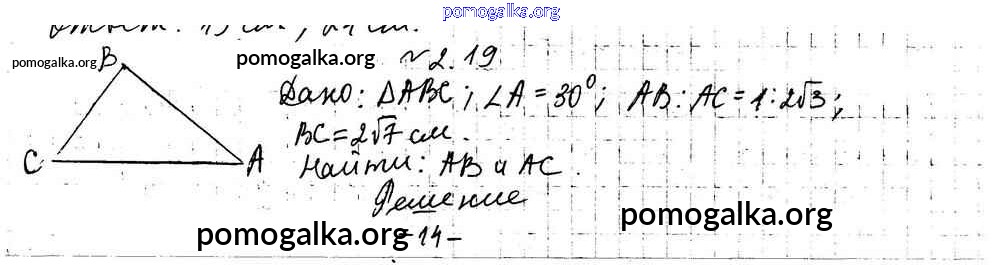 pomogalka.org
Ответ: 13 см, 14 см.
B
pomogalka.org
pomogalka.org
№2.19.
Дано: ΔABC; ∠A = 30°; AB:AC = 1:2√3;
BC = 2√7 см.
C
A
Найти: AB и AC.
Решение
pomogalka.org
-14-
pomogalka.org